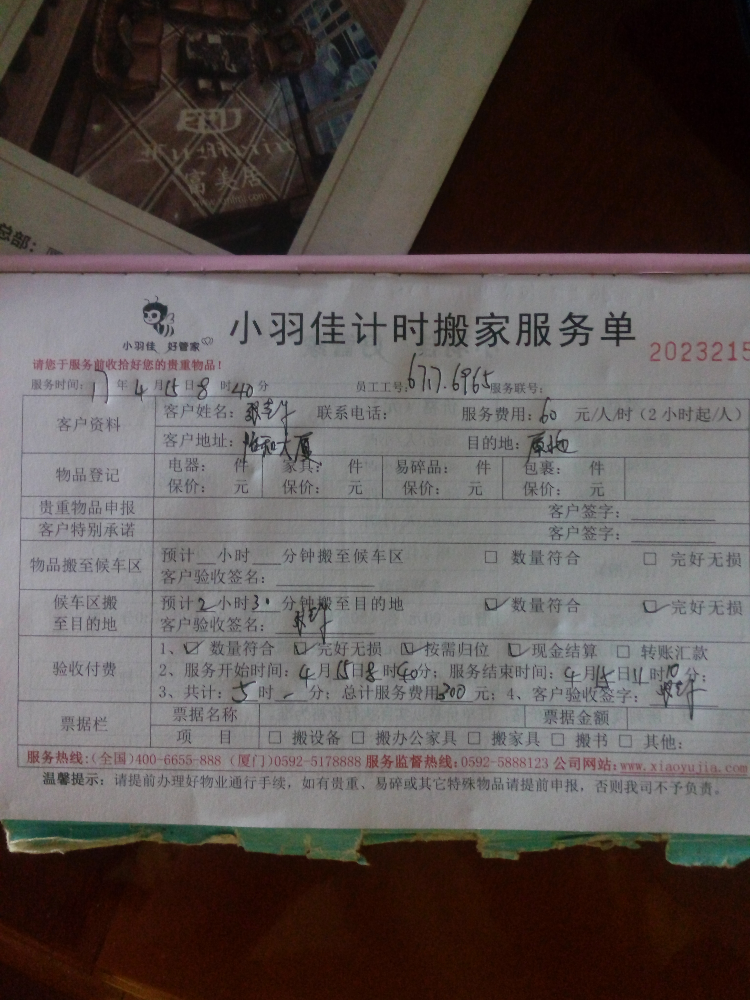 富美居
总部：
小羽佳 好管家
小羽佳计时搬家服务单
2023215
请您于服务前收拾好您的贵重物品！
服务时间：17年4月15日8时40分 员工工号：677.6965 服务联号：
客户资料 客户姓名： 联系电话： 服务费用：60 元/人/时（2小时起/人）
客户地址：怡和大厦 目的地：
物品登记 电器： 件 家具： 件 易碎品： 件 包裹： 件
保价： 元 保价： 元 保价： 元 保价： 元
贵重物品申报 客户签字：
客户特别承诺 客户签字：
物品搬至候车区 预计 小时 分钟搬至候车区 □ 数量符合 □ 完好无损
客户验收签名：
候车区搬至目的地 预计2小时30分钟搬至目的地 ☑ 数量符合 ☑ 完好无损
客户验收签名：
验收付费 1、☑ 数量符合 ☑ 完好无损 ☑ 按需归位 ☑ 现金结算 □ 转账汇款
2、服务开始时间：4月15日8时40分；服务结束时间：4月15日11时10分；
3、共计：5时-分；总计服务费用300元；4、客户验收签字：
票据栏 票据名称 票据金额
项 目 □ 搬设备 □ 搬办公家具 □ 搬家具 □ 搬书 □ 其他：
服务热线：(全国)400-6655-888 (厦门)0592-5178888 服务监督热线：0592-5888123 公司网站：www.xiaoyujia.com
温馨提示：请提前办理好物业通行手续，如有贵重、易碎或其它特殊物品请提前申报，否则我司不予负责。